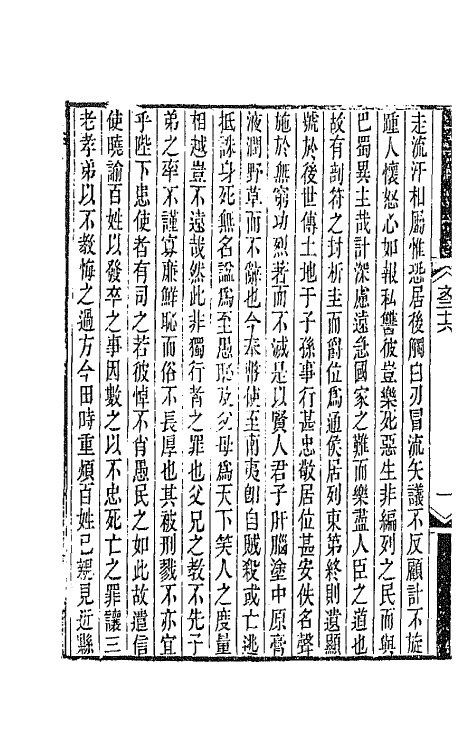 走流汗相屬惟恐居後觸白刃冒流矢議不反顧計不旋
踵人懷怒心如報私讐彼豈樂死惡生非編列之民而與
巴蜀異主哉計深慮遠急國家之難而樂盡人臣之道也
故有剖符之封析圭而爵位爲通侯居列東第終則遺顯
號於後世傳土地于子孫事行甚忠敬居位甚安佚名聲
施於無窮功烈著而不滅是以賢人君子肝腦塗中原膏
液潤野草而不辭也今奉幣使至南夷卽自賊殺或亡逃
抵誅身死無名諡爲至愚恥及父母爲天下笑人之度量
相越豈不遠哉然此非獨行者之罪也父兄之教不先子
弟之率不謹寡廉鮮恥而俗不長厚也其被刑戮不亦宜
乎陛下患使者有司之若彼悼不肖愚民之如此故遣信
使曉諭百姓以發卒之事因數之以不忠死亡之罪讓三
老孝弟以不教悔之過方今田時重煩百姓已親見近縣
一